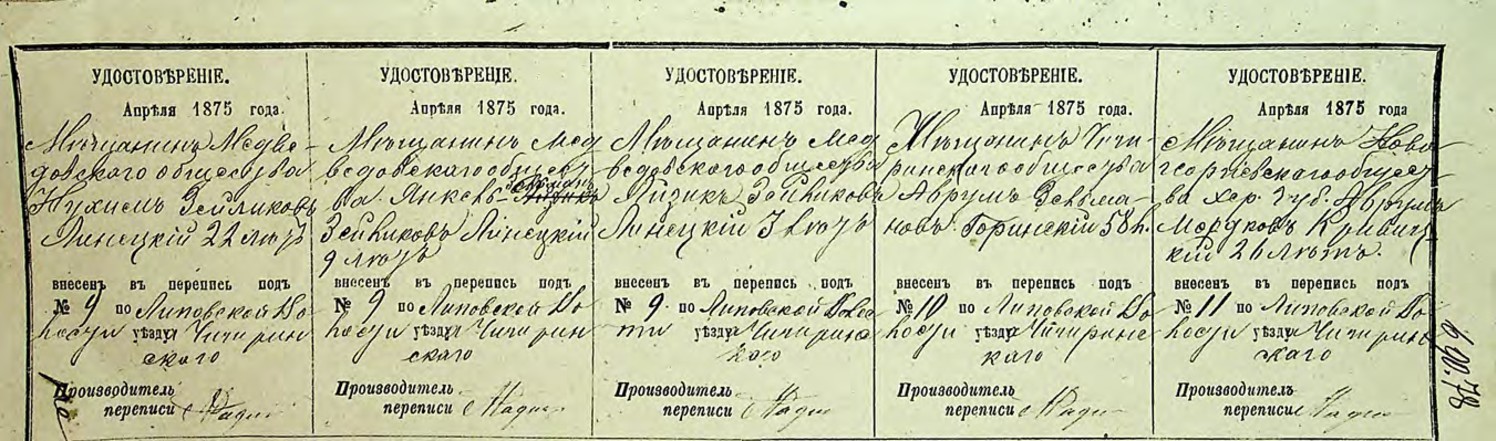 УДОСТОВѢРЕНІЕ.
Апрѣля 1875 года.
Мѣщанинъ Медве-
довскаго общества
Нухимъ Зейликовъ
Линецкій 22 лѣтъ
внесенъ въ перепись подъ
№ 9 по Липовской Во
лости уѣзда Чигирин
скаго
Производитель
переписи
УДОСТОВѢРЕНІЕ.
Апрѣля 1875 года.
Мѣщанинъ Мед
ведовскаго общест
ва Янкель-
Зейликовъ Линецкій
9 лѣтъ
внесенъ въ перепись подъ
№ 9 по Липовской Во
лости уѣзда Чигирин
скаго
Производитель
переписи
УДОСТОВѢРЕНІЕ.
Апрѣля 1875 года.
Мѣщанинъ Мед
ведовскаго общества
Айзикъ Зейликовъ
Линецкій 3 лѣтъ
внесенъ въ перепись подъ
№ 9. по Липовской Волос
ти уѣзда Чигиринс
каго
Производитель
переписи
УДОСТОВѢРЕНІЕ.
Апрѣля 1875 года.
Мѣщанинъ Чиги-
ринскаго общества
Аврумъ Зельма-
новъ Горинскій 58 л.
внесенъ въ перепись подъ
№ 10 по Липовской Во
лости уѣзда Чигиринс
каго
Производитель
переписи
УДОСТОВѢРЕНІЕ.
Апрѣля 1875 года
Мѣщанинъ Ново-
георгіевскаго общест
ва Хер. Губ. Аврумъ
Мордковъ Кривиц
кій 26 лѣтъ.
внесенъ въ перепись подъ
№ 11 по Липовской Во
лости уѣзда Чигирин
скаго
Производитель
переписи